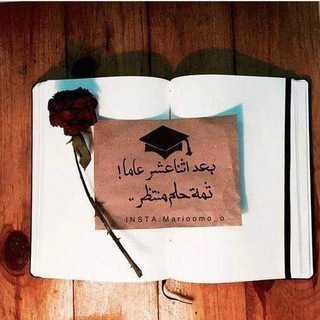 بعد اثنا عشر عاما!
ثمة حلم منتظر..
INSTA:Marioomo_o